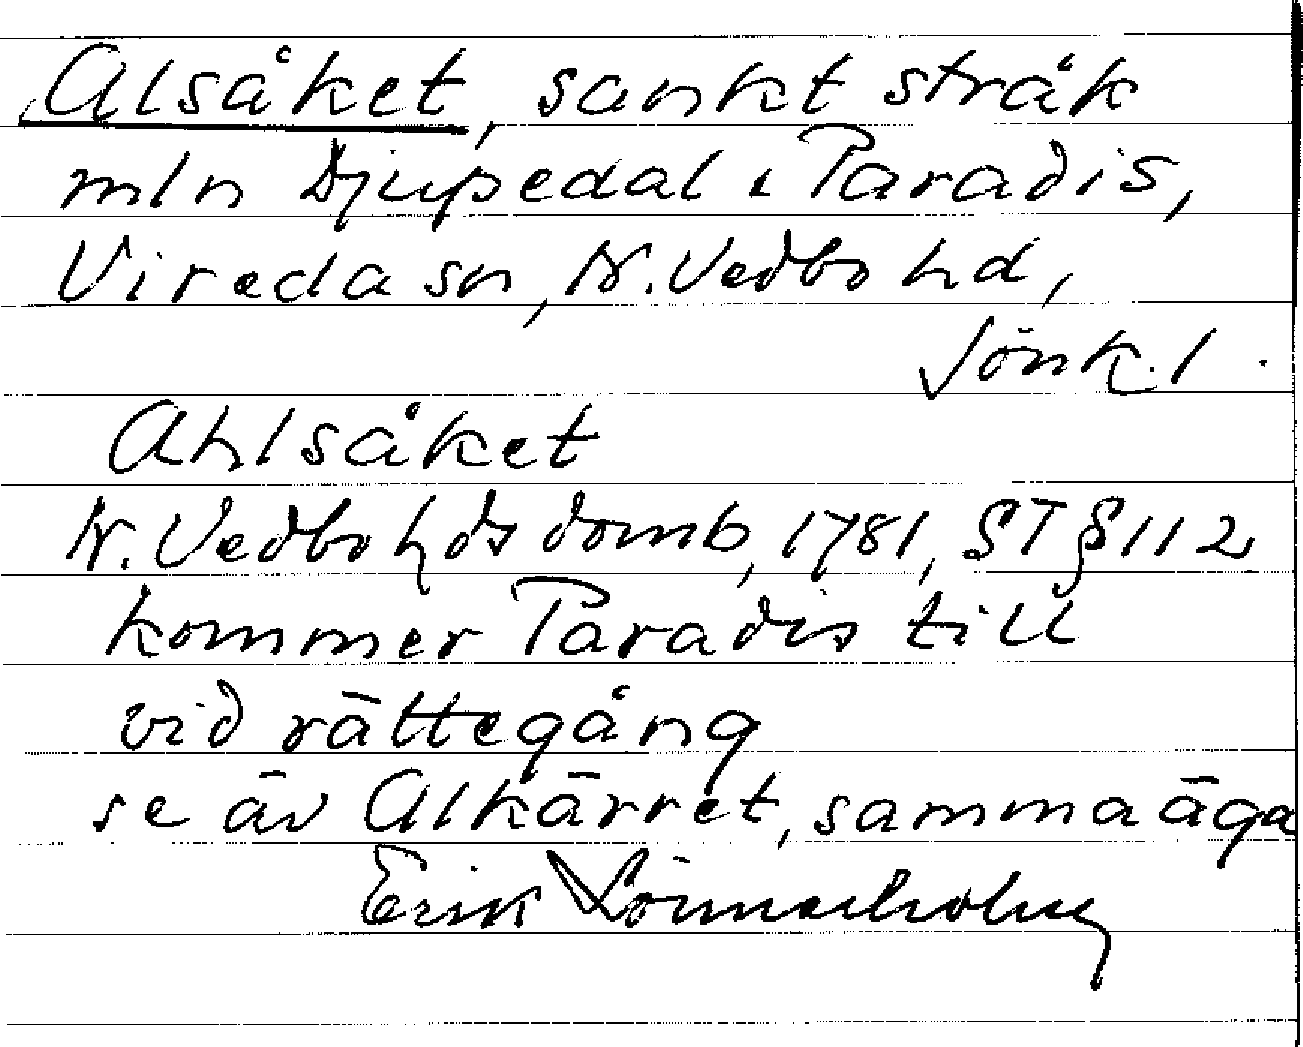 Alsåket, sankt stråk
mln Djupedal & Paradis,
Vireda sn, N. Vedbo hd,
Jönk. l.
Ahlsåket
N. Vedbo hds domb, 1781, ST § 112
kommer Paradis till
vid rättegång
se äv Alkärret, samma äga
Erik Lönnerholm